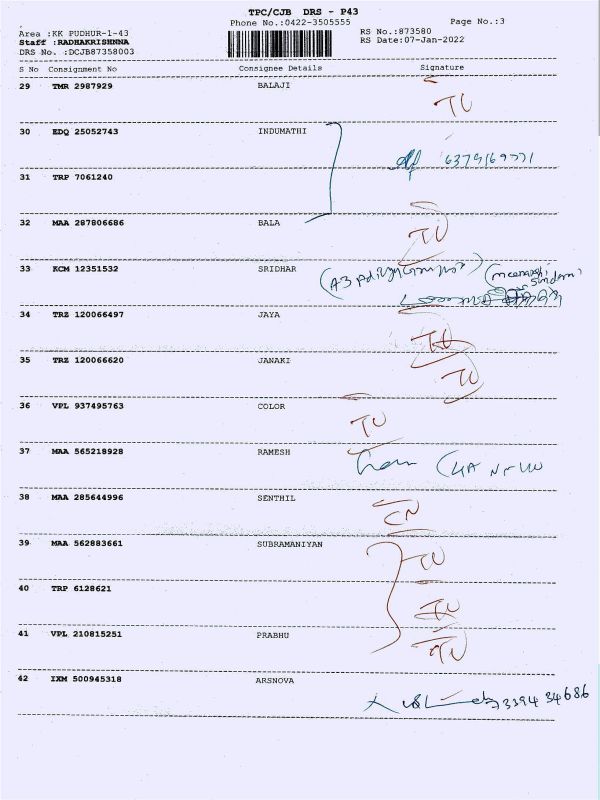 TPC/CJB DRS - P43
Phone No.:0422-3505555 Page No.:3
Area :KK PUDHUR-1-43 RS No.:873580
Staff :RADHAKRISHNNA RS Date:07-Jan-2022
DRS No. :DCJB87358003
S No Consignment No Consignee Details Signature
29 TMR 2987929 BALAJI
TU
30 EDQ 25052743 INDUMATHI
6379169771
31 TRP 7061240
32 MAA 287806686 BALA
TU
33 KCM 12351532 SRIDHAR
34 TRZ 120066497 JAYA
TU
35 TRZ 120066620 JANAKI
TU
36 VPL 937495763 COLOR
TU
37 MAA 565218928 RAMESH
38 MAA 285644996 SENTHIL
CN
39 MAA 562883661 SUBRAMANIYAN
TU
40 TRP 6128621
TU
41 VPL 210815251 PRABHU
TU
42 IXM 500945318 ARSNOVA